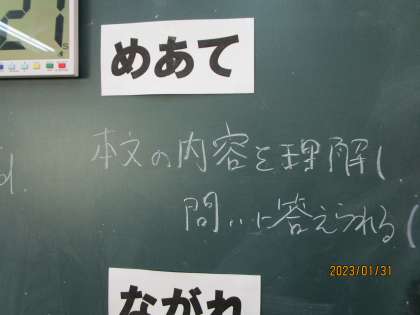 めあて
本文の内容を理解し
問いに答えられる(
2023/01/31
ながれ